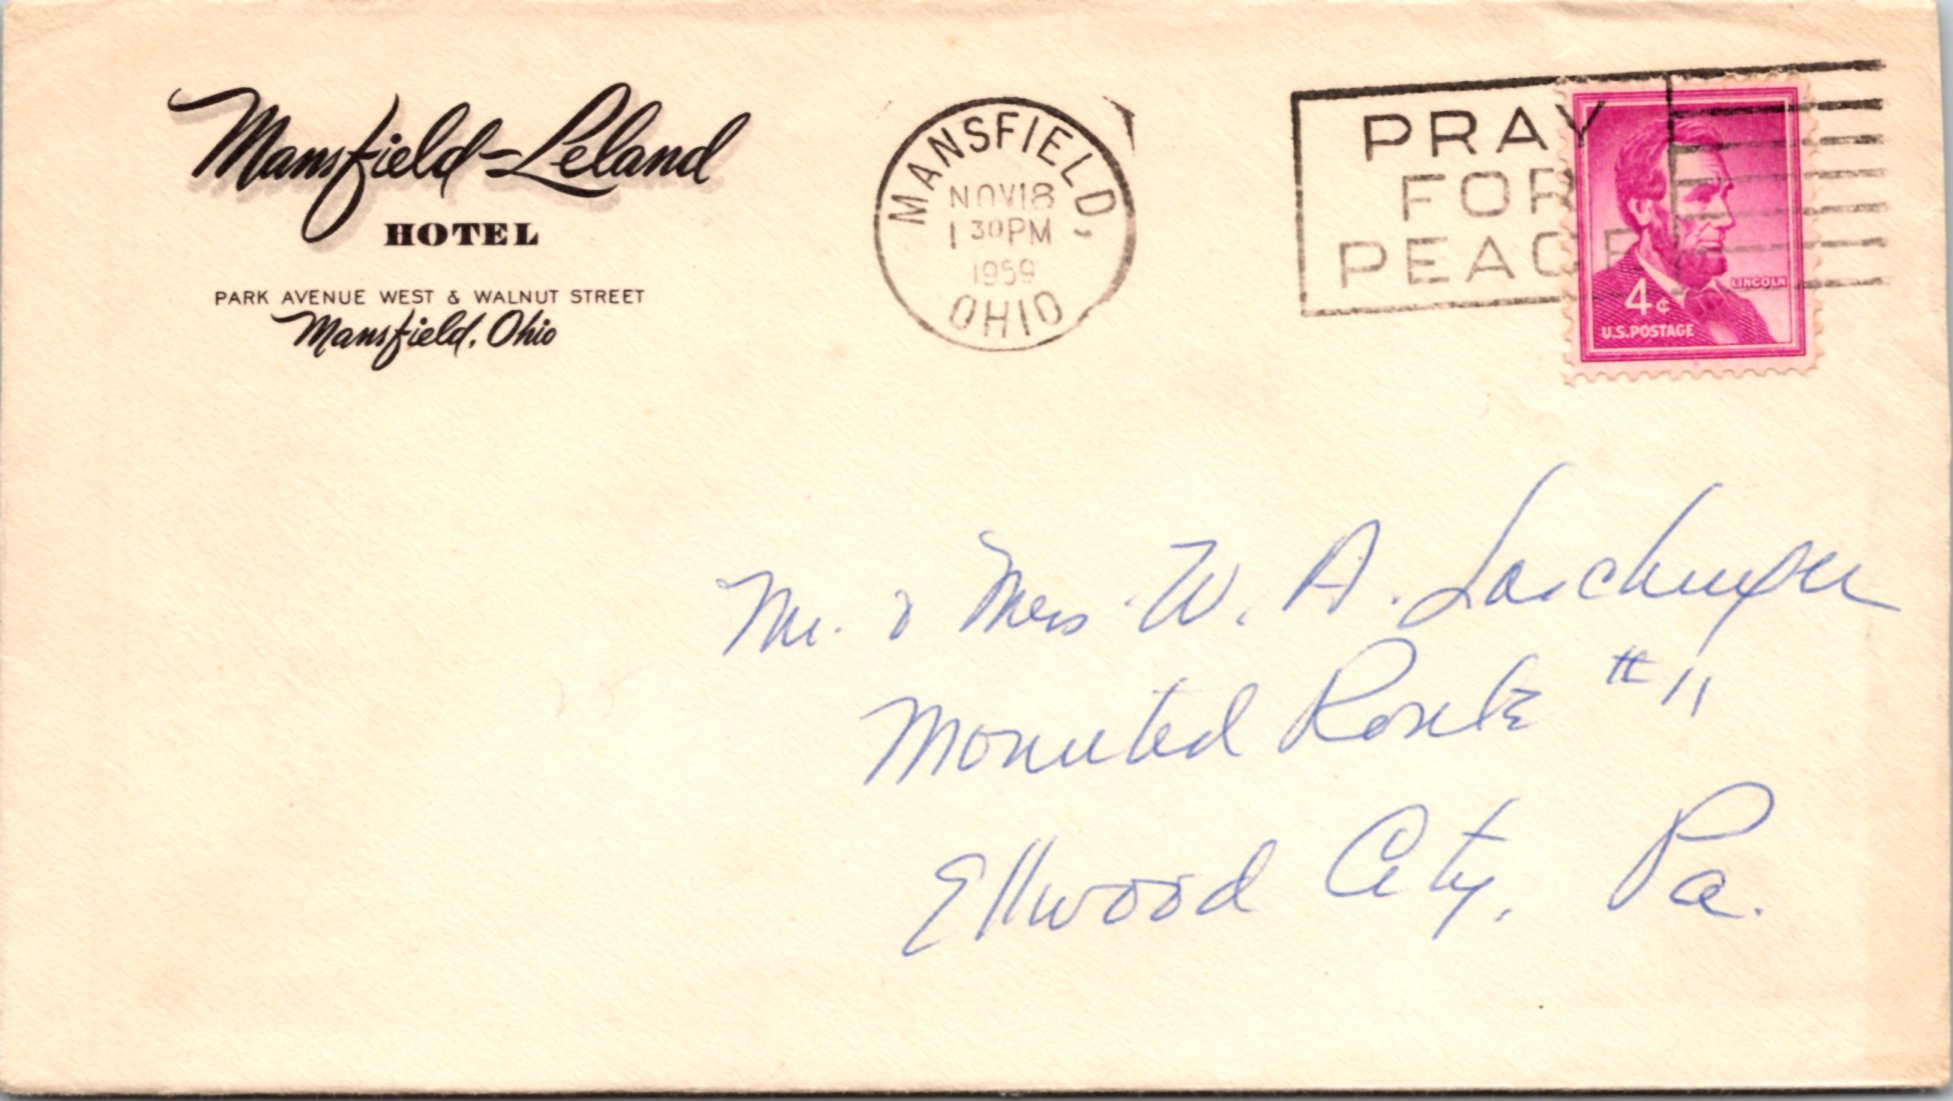 Mansfield-Leland
HOTEL
PARK AVENUE WEST & WALNUT STREET
Mansfield, Ohio
MANSFIELD,
NOV 18
1 30 PM
1959
OHIO
PRAY
FOR
PEACE
LINCOLN
4¢
U.S. POSTAGE
Mr. & Mrs. W. A.
Mounted Route #11
Ellwood City, Pa.